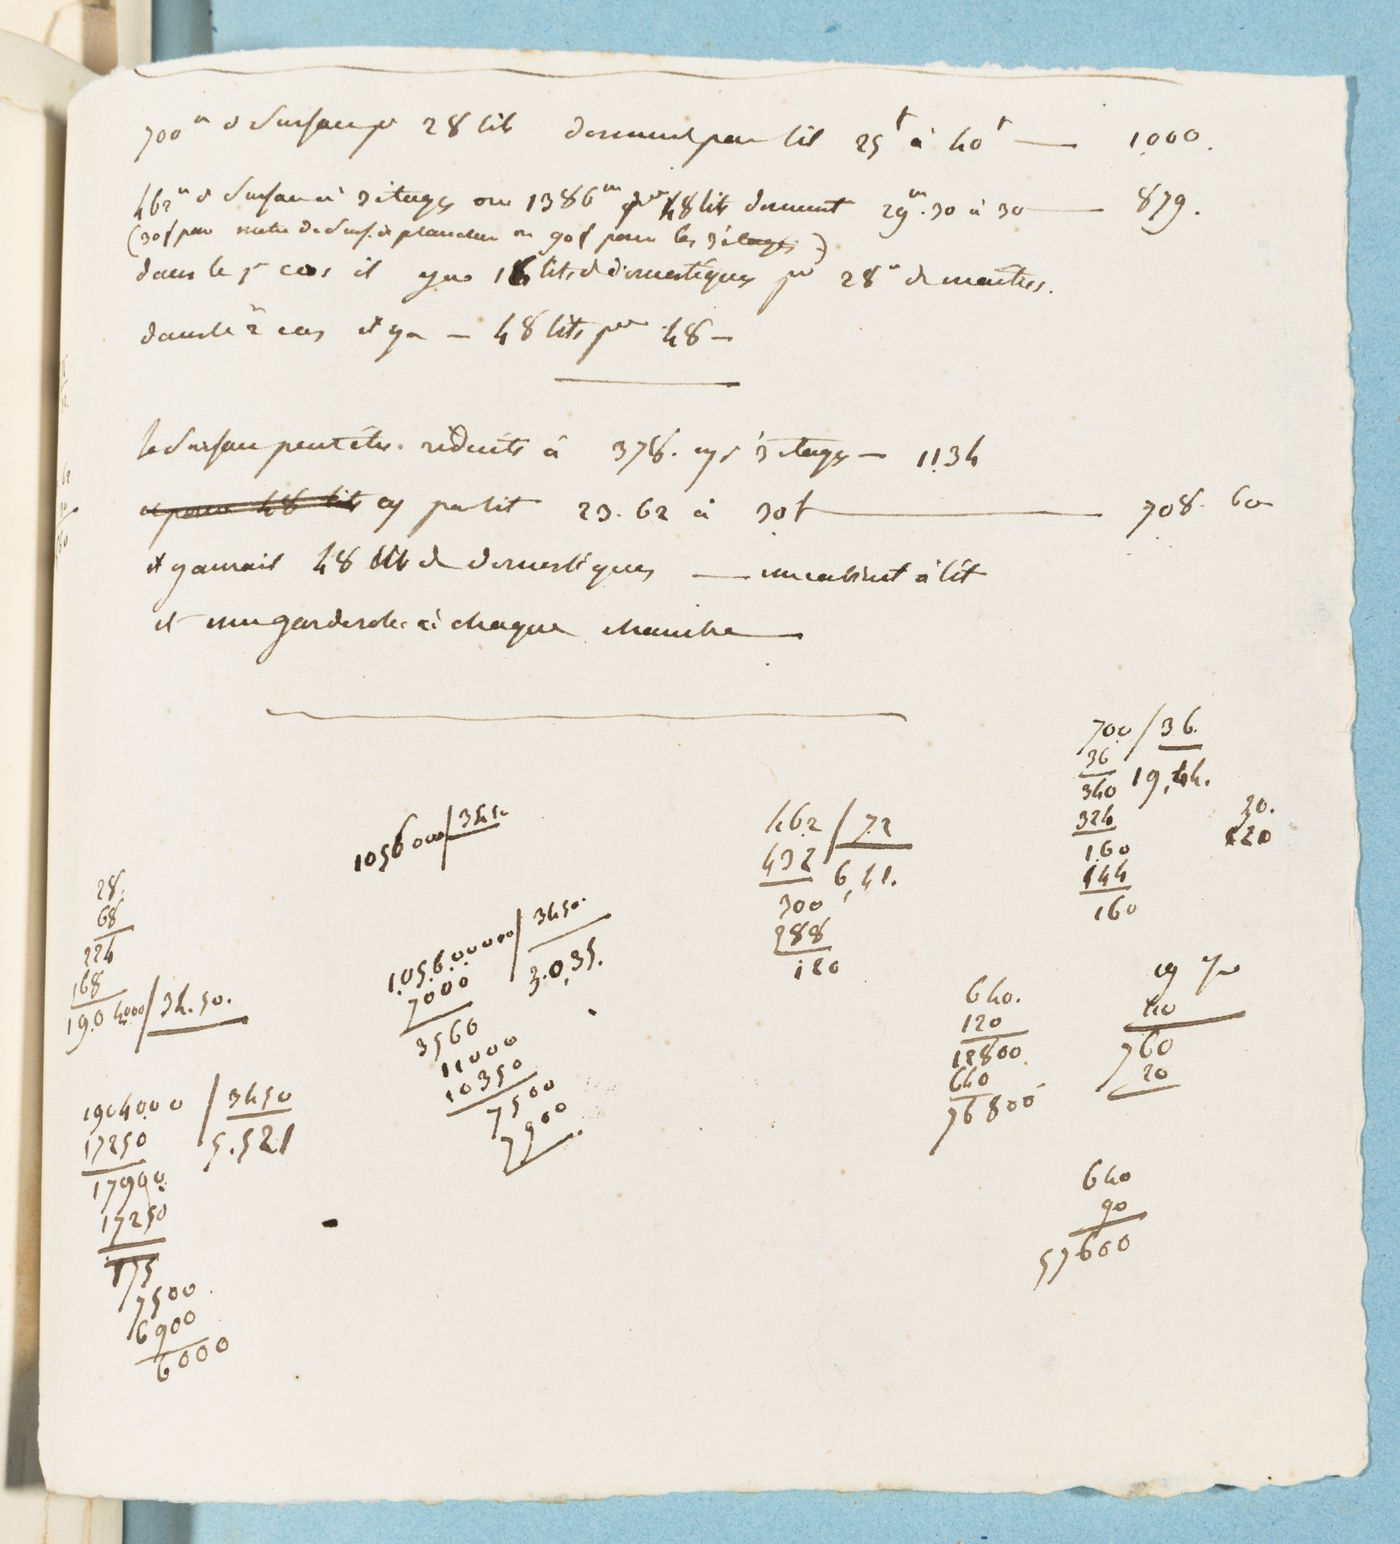 700m de surface pr 28 lits donnent par lit 25f à 40f — 1000.
462m de surface à 3 étages ou 1386m pour 48 lits donnent 29m.30 à 30 — 879.
(30f par metre de surf. de plancher ou 90f pour les 3 étages)
dans le 1r cas il y a 16 lits de domestiques pr 28 de maitres.
dans le 2 cas il y a — 48 lits pr 48 —
la surface peut être réduite à 378. et 3 étages — 1134
et pour 48 lits et par lit 23.62 à 30f — 708. 60
il y aurait 48 lits de domestiques — un cabinet à lit
et une garderobe à chaque chambre —
700/36
36 19,44.
340
324
160
144
160
20.
120
1056000/34.50
462/72
432 6,41.
300
288
120
28.
68
224
168
1904000/34.50.
1056.00000/3450.
7000 3.0,35.
3560
11000
10350
7500
7900
640.
120
12800
640
76800
19
40
760
20
1904000/3450
17250 5.521
17900
17250
175
7500
6900
6000
640
90
57600